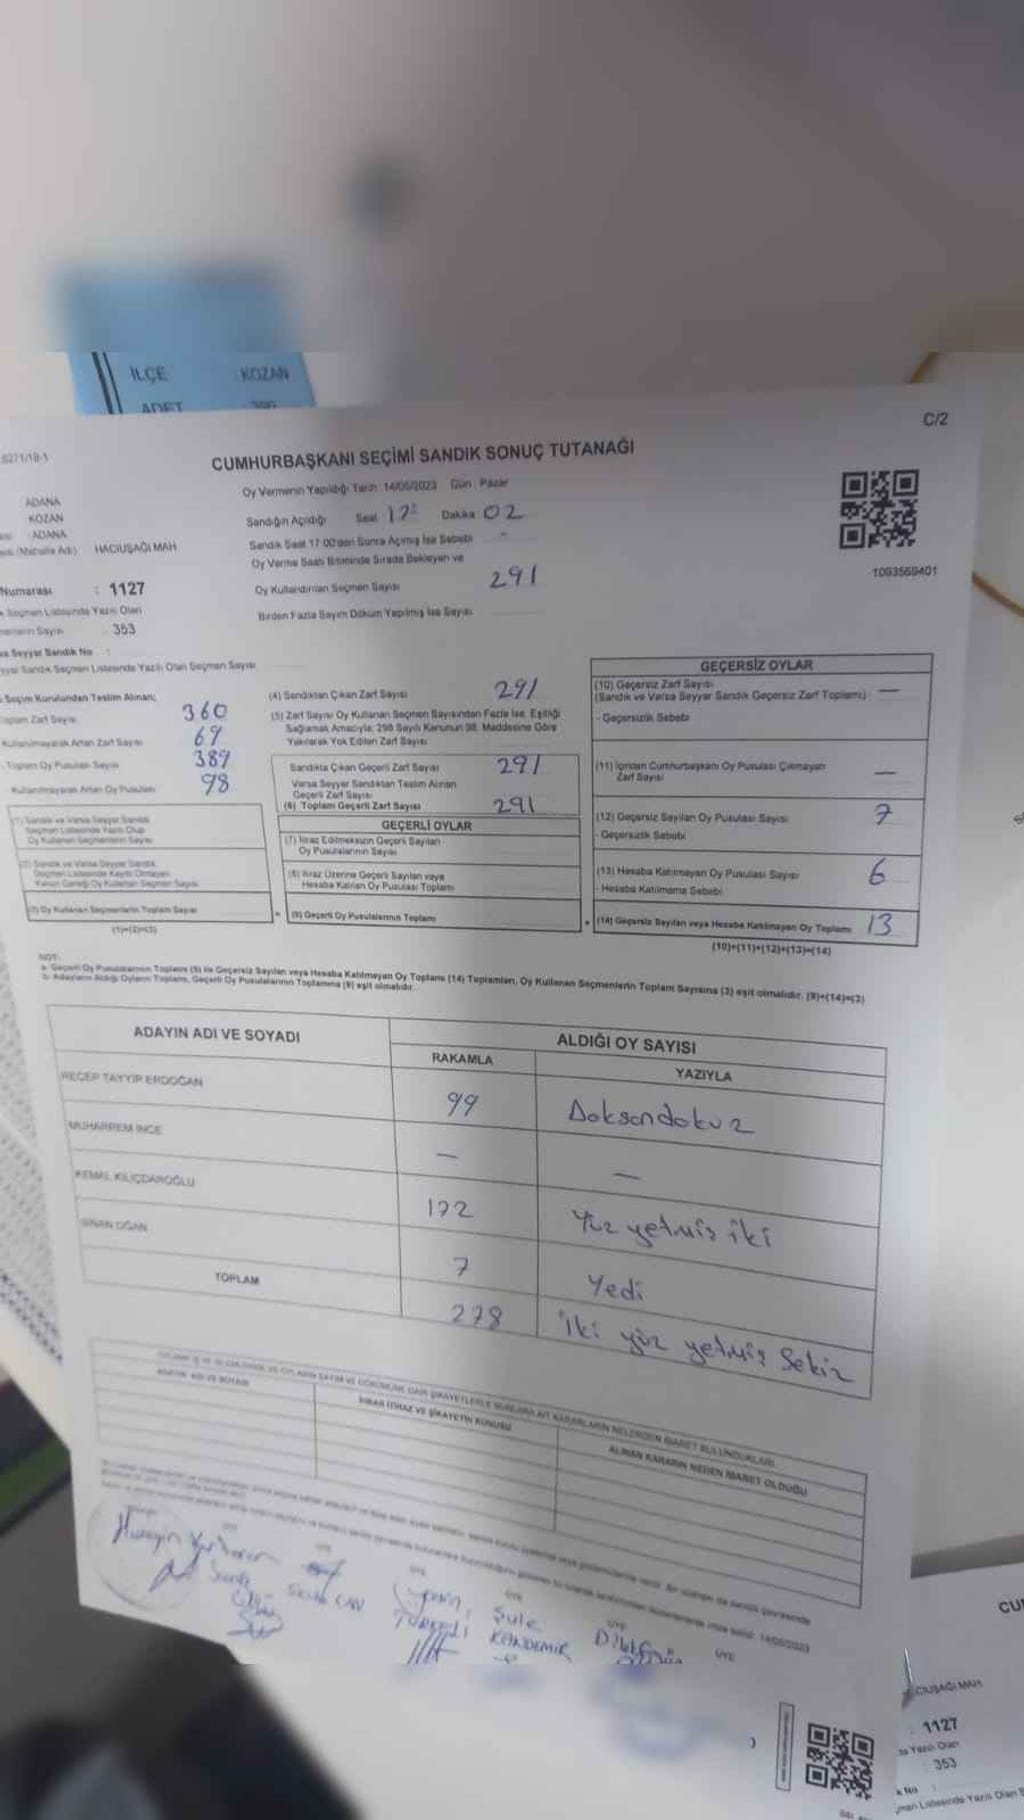 İLÇE KOZAN
ADET
C/2
CUMHURBAŞKANI SEÇİMİ SANDIK SONUÇ TUTANAĞI
Oy Vermenin Yapıldığı Tarih: 14/05/2023 Gün: Pazar
ADANA
KOZAN
ADANA
(Mahalle Adı) HACIUŞAĞI MAH
Numarası : 1127
Seçmen Listesinde Yazılı Olan
Sayısı 353
Seyyar Sandık No :
Sandık Seçmen Listesinde Yazılı Olan Seçmen Sayısı
Sandığın Açıldığı Saat 17 Dakika 02
Sandık Saat 17:00'den Sonra Açılmış İse Sebebi -
Oy Verme Saati Bitiminde Sırada Bekleyen ve
Oy Kullandırılan Seçmen Sayısı 291
Birden Fazla Sayım Döküm Yapılmış İse Sayısı
1093569401
Seçim Kurulundan Teslim Alınan;
Toplam Zarf Sayısı 360
Kullanılmayarak Artan Zarf Sayısı 69
Toplam Oy Pusulası Sayısı 389
Kullanılmayarak Artan Oy Pusulası 98
(1) Sandık ve Varsa Seyyar Sandık
Seçmen Listesinde Yazılı Olup
Oy Kullanan Seçmenlerin Sayısı
(2) Sandık ve Varsa Seyyar Sandık
Seçmen Listesinde Kayıtlı Olmayan
Kanun Gereği Oy Kullanan Seçmen Sayısı
(3) Oy Kullanan Seçmenlerin Toplam Sayısı
(1)+(2)=(3)
(4) Sandıktan Çıkan Zarf Sayısı 291
(5) Zarf Sayısı Oy Kullanan Seçmen Sayısından Fazla İse, Eşitliği
Sağlamak Amacıyla; 298 Sayılı Kanunun 98. Maddesine Göre
Yakılarak Yok Edilen Zarf Sayısı
Sandıkta Çıkan Geçerli Zarf Sayısı 291
Varsa Seyyar Sandıktan Teslim Alınan
Geçerli Zarf Sayısı
(6) Toplam Geçerli Zarf Sayısı 291
GEÇERLİ OYLAR
(7) İtiraz Edilmeksizin Geçerli Sayılan
Oy Pusulalarının Sayısı
(8) İtiraz Üzerine Geçerli Sayılan veya
Hesaba Katılan Oy Pusulası Toplamı
(9) Geçerli Oy Pusulalarının Toplamı
GEÇERSİZ OYLAR
(10) Geçersiz Zarf Sayısı
(Sandık ve Varsa Seyyar Sandık Geçersiz Zarf Toplamı) —
- Geçersizlik Sebebi
(11) İçinden Cumhurbaşkanı Oy Pusulası Çıkmayan
Zarf Sayısı —
(12) Geçersiz Sayılan Oy Pusulası Sayısı 7
- Geçersizlik Sebebi
(13) Hesaba Katılmayan Oy Pusulası Sayısı 6
- Hesaba Katılmama Sebebi
+ (14) Geçersiz Sayılan veya Hesaba Katılmayan Oy Toplamı 13
(10)+(11)+(12)+(13)=(14)
NOT:
a- Geçerli Oy Pusulalarının Toplamı (9) ile Geçersiz Sayılan veya Hesaba Katılmayan Oy Toplamı (14) Toplamları, Oy Kullanan Seçmenlerin Toplam Sayısına (3) eşit olmalıdır. (9)+(14)=(3)
b- Adayların Aldığı Oyların Toplamı, Geçerli Oy Pusulalarının Toplamına (9) eşit olmalıdır.
ADAYIN ADI VE SOYADI ALDIĞI OY SAYISI
RAKAMLA YAZIYLA
RECEP TAYYİP ERDOĞAN 99 Doksandokuz
MUHARREM İNCE — —
KEMAL KILIÇDAROĞLU 172 Yüz yetmiş iki
SİNAN OĞAN 7 Yedi
TOPLAM 278 İki yüz yetmiş Sekiz
ADAYIN ADI VE SOYADI
İTİRAZ VE ŞİKAYETİN KONUSU
ALINAN KARARIN NEDEN İBARET OLDUĞU
14/05/2023
ÜYE ÜYE ÜYE ÜYE ÜYE
Hüseyin
CAN
Şule
KANDEMİR
CUM
HACIUŞAĞI MAH
1127
353